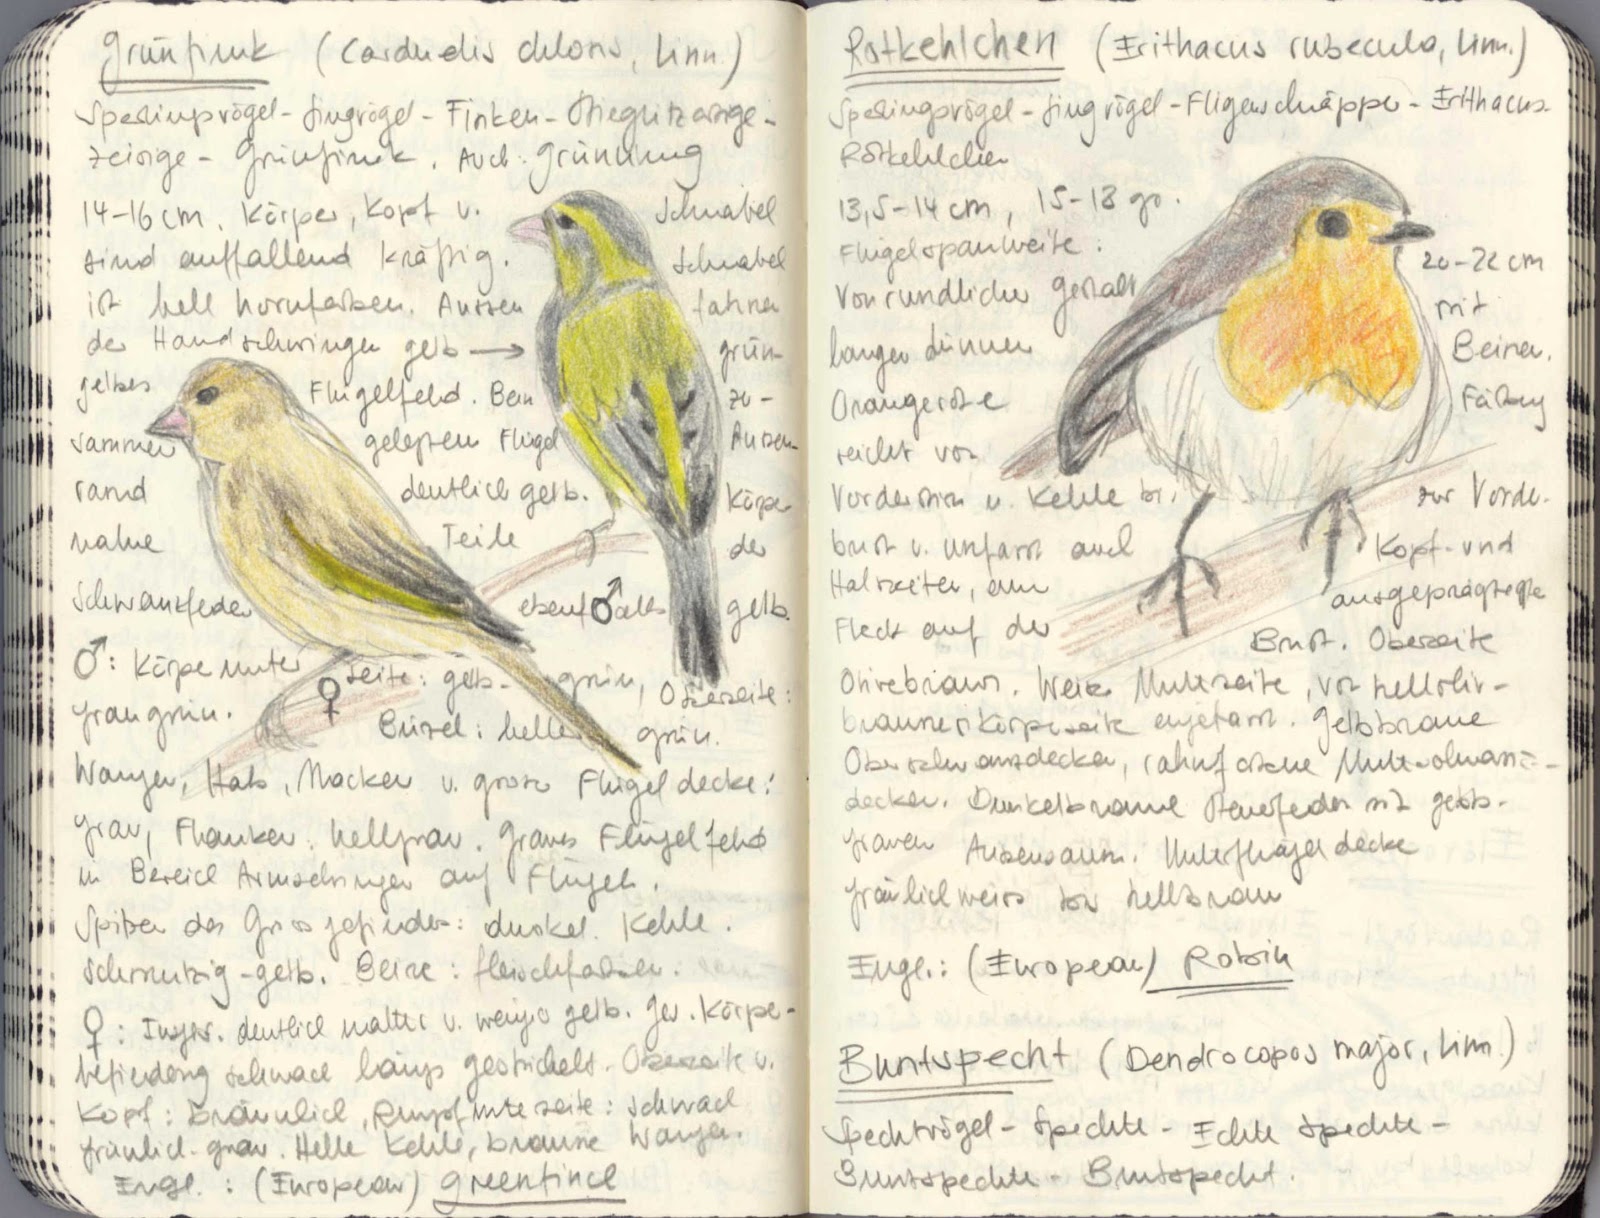 Grünfink (Carduelis chloris, Linn.)
Sperlingsvögel - Singvögel - Finken - Stieglitzartige -
Zeisige - Grünfink. Auch: Grünling
14-16 cm. Körper, Kopf u. Schnabel
sind auffallend kräftig. Schnabel
ist hell hornfarben. Aussenfahnen
der Handschwingen gelb → grün-
gelbes Flügelfeld. Beim zu-
sammengelegten Flügel Aussen-
rand deutlich gelb. Körper
nahe Teile der
Schwanzfeder ebenfalls gelb.
♂
♂: Körperunterseite: gelb-grün, Oberseite:
graugrün. Bürzel: heller grün.
♀
Wangen, Hals, Nacken u. grosse Flügeldecke:
grau, Flanken: hellgrau. Graues Flügelfeld
im Bereich Armschwingen auf Flügel.
Spitzen des Grossgefieders: dunkel. Kehle:
schmutzig-gelb. Beine: fleischfarben.
♀: Insges. deutlich matter u. weniger gelb. Ges. Körper-
befiederung schwach längs gestrichelt. Oberseite u.
Kopf: bräunlich, Rumpfunterseite: schwach
grünlich-grau. Helle Kehle, braune Wangen.
Engl.: (European) greenfinch
Rotkehlchen (Erithacus rubecula, Linn.)
Sperlingsvögel - Singvögel - Fliegenschnäpper - Erithacus -
Rotkehlchen
13,5-14 cm, 15-18 gr.
Flügelspannweite: 20-22 cm
Von rundlicher Gestalt mit
langen dünnen Beinen.
Orangerote Färbung
reicht von
Vorderstirn u. Kehle bis zur Vorder-
brust u. umfasst auch Kopf- und
Halsseiten, ausgeprägteste
Fleck auf der Brust. Oberseite
Olivebraun. Weisse Unterseite, von helloliv-
brauner Körperseite eingefasst. Gelbbraune
Oberschwanzdecken, rahmfarbene Unterschwanz-
decken. Dunkelbraune Steuerfedern mit gelb-
grauen Aussensaum. Unterflügeldecke
gräulichweiss bis hellbraun
Engl.: (European) Robin
Buntspecht (Dendrocopos major, Linn.)
Spechtvögel - Spechte - Echte Spechte -
Buntspechte - Buntspecht.